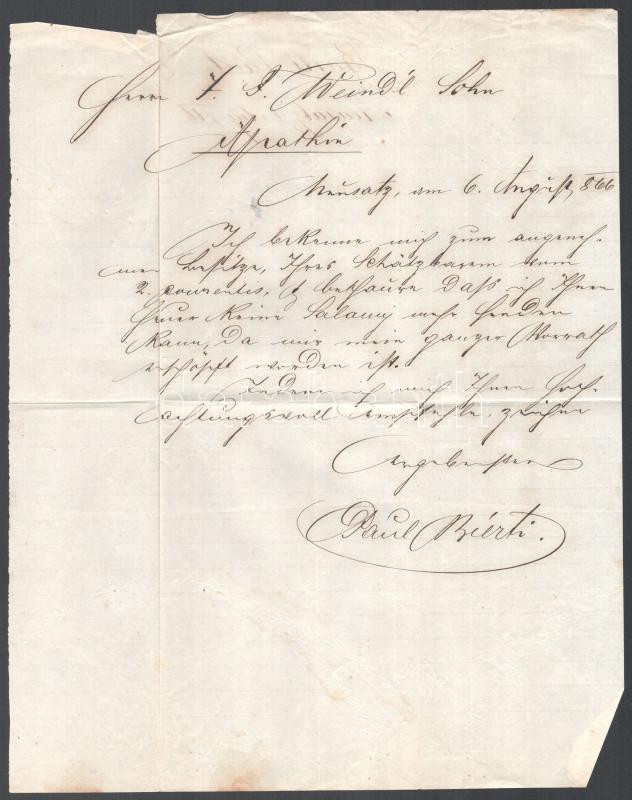 Herrn F. J. Weindl Sohn
Apathin
Neusatz, am 6. August 866
Ich bekenne mich zum angeneh-
men Besitze, Ihres Schätzbaren vom
2. courentis, & bethaure daß ich Ihnen
heuer keine Salamj mehr senden
kann, da mir mein ganzer Vorrath
erschöpft worden ist.
Indem ich mich Ihnen hoch-
achtungsvoll empfehle, zeichne
Ergebenster
Paul Bierti.